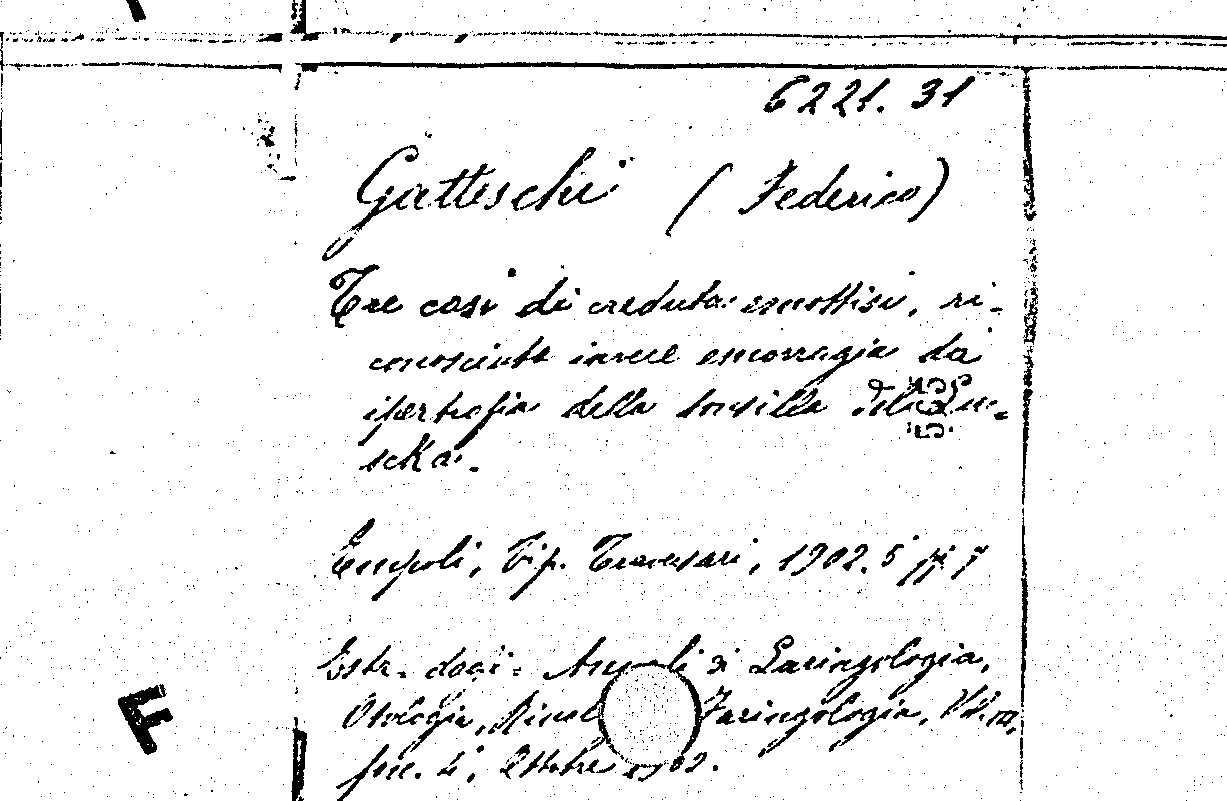 6221.31
Gatteschi (Federico)
Tre casi di creduta emottisi, ri-
conosciuta invece emorragia da
ipertrofia della tonsilla del Lu-
scKa.
Empoli, Tip. Traversari, 1902. 5 pp. 7
Estr. dagi: Annali di Laringologia,
Otologia, Rinol Faringologia, Vol. III,
fasc. 4, Ottobre 1902.
F